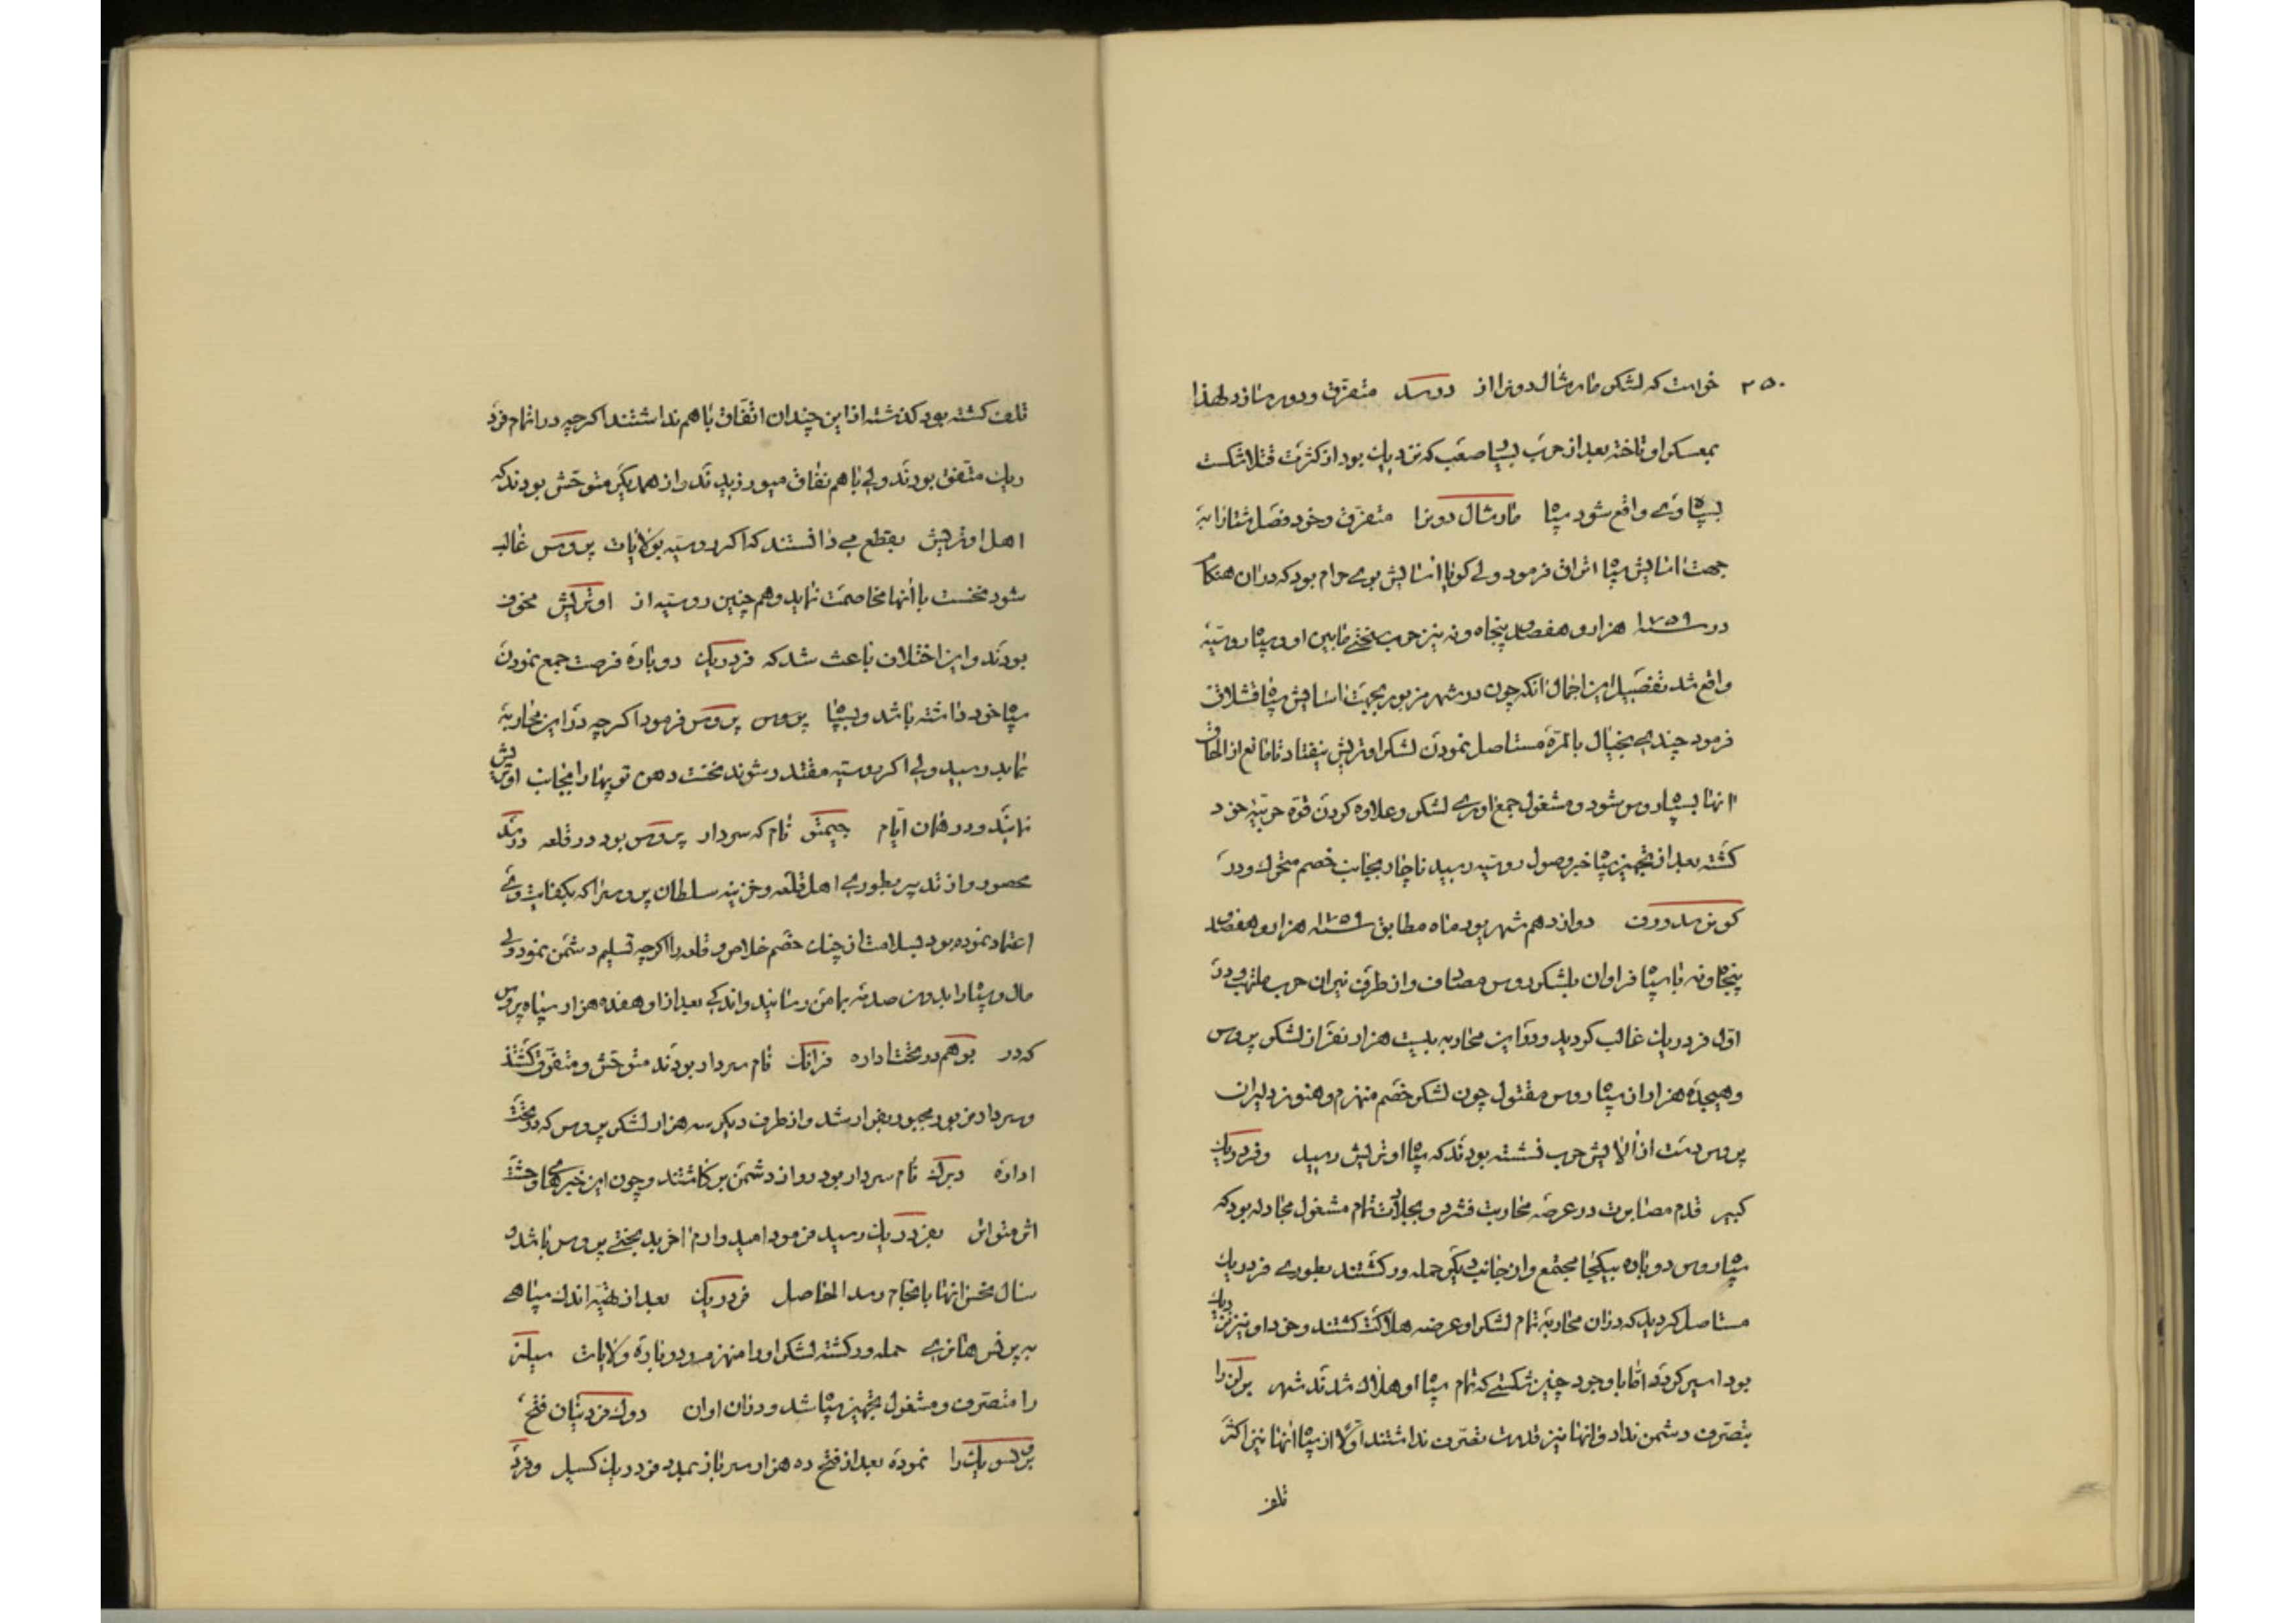 ۲۵۰ خواست که لشکر مارشال دونرا از درسد متفرق و دور سازد لهذا
بمعسکر او تاخته بعد از حرب بسیا صعب که نزدیك بود از کثرت قتلا شکست
بسپاه وی واقع شود سپاه مارشال دونرا متفرق و خود فصل شتا را به
جهت اسایش سپاه اتراق فرمود ولی کویا اسایش بوی حرام بود که در ان هنکام
در سنه ۱۷۵۹ هزار و هفصد و پنجاه و نه نیز حرب سختی مابین او و سپاه روسیه
واقع شد تفصیل این اجمال انکه چون در شهر مزبور بجهت اسایش سپاه قشلاق
فرمود چندی بخیال بالمره مستاصل نمودن لشکر اوتریش بیفتاد تا مانع از الحاق
انها بسپاه روس شود و مشغول جمع اوری لشکر و علاوه کردن قوه حربیه خود
کشته بعد از تجهیز سپاه خبر وصول روسیه رسید ناچار بجانب خصم متحرك و در
کونرسدورف دوازدهم شهر یود ماه مطابق سنه ۱۷۵۹ هزار و هفصد
پنجاه و نه با سپاه فراوان بلشکر روس مصاف و از طرفی نیران حرب ملتهب و در
اول فردریك غالب کردید و در این محاربه بیست هزار نفر از لشکر پروس
و هیجده هزار از سپاه روس مقتول چون لشکر خصم منهزم و هنوز دلیران
پروس دست از الایش حرب نشسته بودند که سپاه اوتریش رسید و فردریك
کبیر قدم مصابرت در عرصه محاربت فشرد و بجلادت تمام مشغول مجادله بود که
سپاه روس دوباره بیکجا مجتمع و از جانب دیکر حمله ور کشتند بطوری فردریك
مستاصل کردید که در ان محاربه تمام لشکر او عرضه هلاکت کشتند و خود او نیز نزدیك
بود اسیر کردد اما با وجود چنین شکستی که تمام سپاه او هلاك شدند شهر برلن را
بتصرف دشمن نداد و انها نیز قدرت تصرف نداشتند اولا از سپاه انها نیز اکثر
تلف
تلف کشته بود کذشته از این چندان اتفاق با هم نداشتند اکرچه در اتمام فرد
ریك متفق بودند ولی با هم نفاق میورزیدند و از همدیکر متوحش بودند که
اهل اوتریش بقطع می دانستند که اکر روسیه بولایات پروس غالب
شود نخست با انها مخاصمت نماید و هم چنین روسیه از اوتریش مخوف
بودند و این اختلاف باعث شد که فردریك دوباره فرصت جمع نمودن
سپاه خود داشته باشد و بسپاه پروس پروس فرمود اکرچه در این محاربه
نماید رسید ولی اکر روسیه مقتدر شوند نخست دهن توپها را بجانب اوتریش
نمایند و در همان ایام جیمتو نام که سردار پروس بود در قلعه درسد
محصور و از تدبیر بطوری اهل قلعه و خزینه سلطان پروس را که بکفایت وی
اعتماد نموده بود بسلامت از چنان خصم خلاص و قلعه را اکرچه تسلیم دشمن نمود ولی
مال و سپاه را بدون صدمه بمامن رسانید و اندکی بعد از او هفده هزار سپاه پروس
که در بوهم در تحت اداره فرانك نام سردار بودند متوحش و متفرق کشتند
و سردار مزبور مجبور بفرار شد و از طرف دیکر سه هزار لشکر پروس که در تحت
اداره دبرك نام سردار بود رو از دشمن بر کاشتند و چون این خبرهای وحشت
اثر متواتر بفردریك رسید فرمود امیدوارم اخر بدبختی پروس باشد و
سال نحس انها بانجام رسد الحاصل فردریك بعد از تهیه اندك سپاهی
به پرنس هانری حمله ور کشته لشکر او را منهزم و دوباره ولایات سیلز
را متصرف و مشغول تجهیز سپاه شد و در ان اوان دوك فردینان فتح
برنسویك را نموده بعد از فتح ده هزار سرباز بمدد فردریك کسیل و فرد